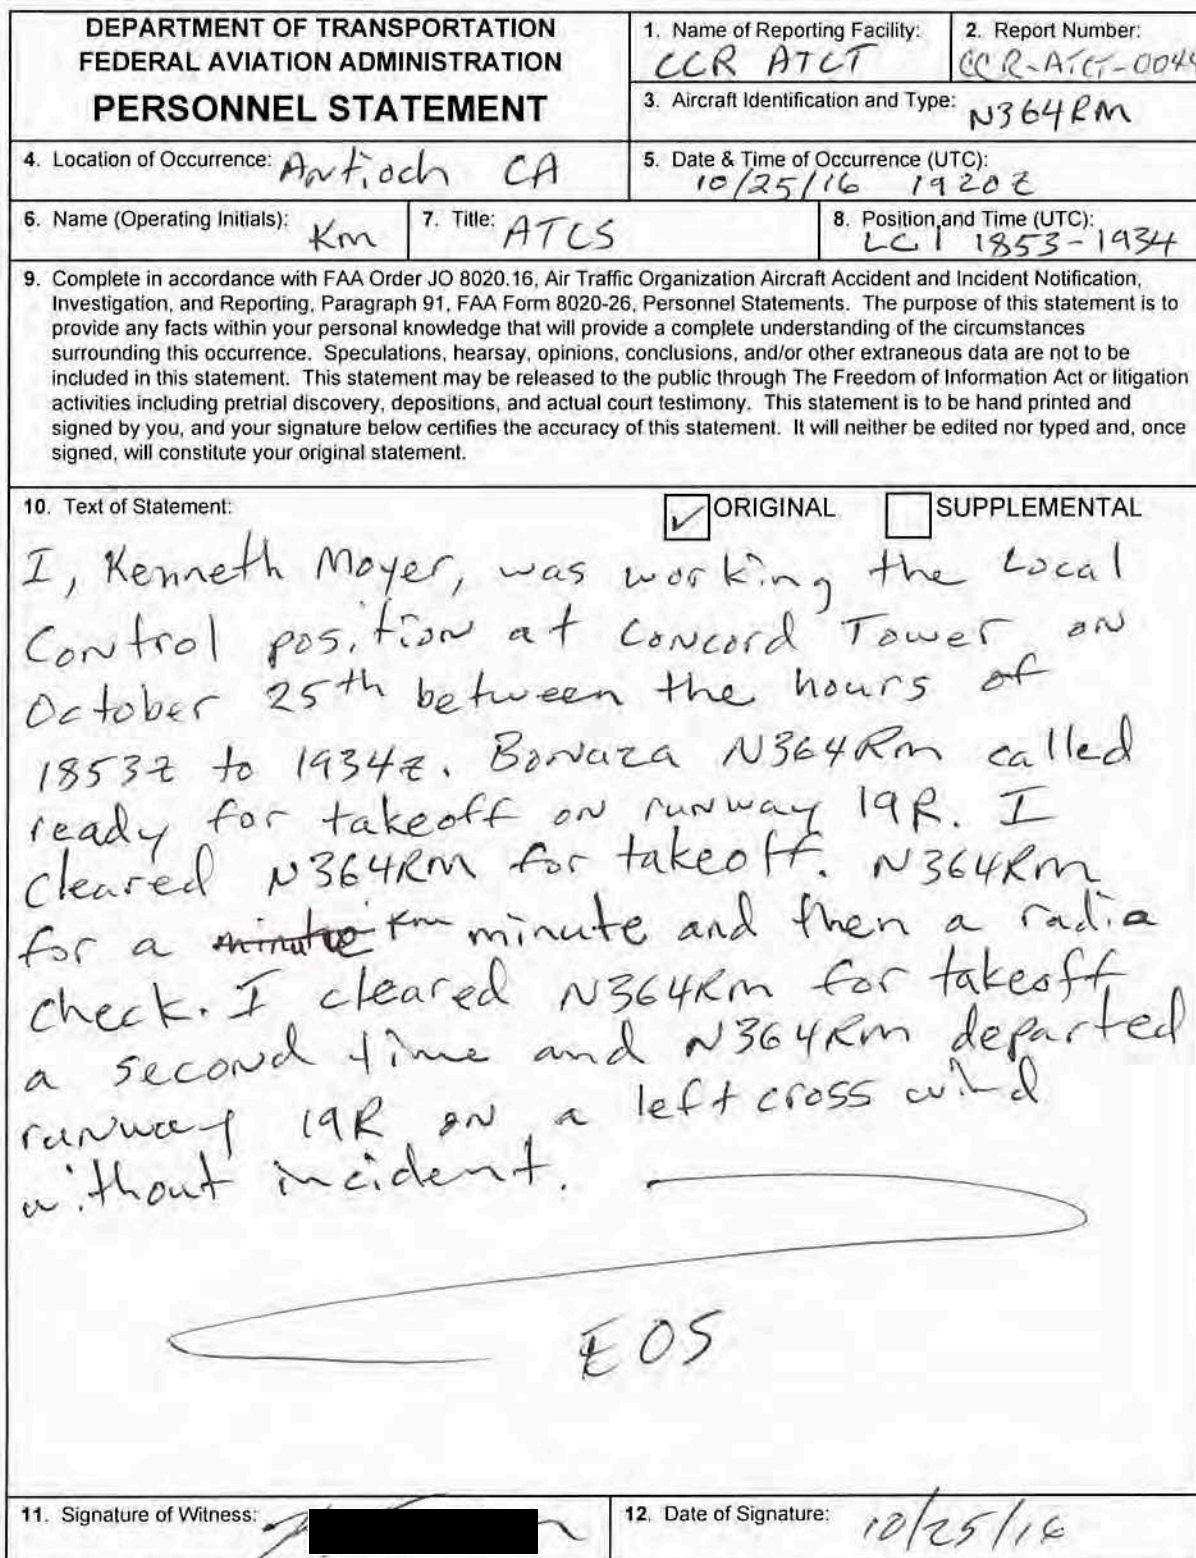 DEPARTMENT OF TRANSPORTATION
FEDERAL AVIATION ADMINISTRATION
PERSONNEL STATEMENT
1. Name of Reporting Facility:
CCR ATCT
2. Report Number:
CCR-ATCT-0044
3. Aircraft Identification and Type: N364RM
4. Location of Occurrence: Antioch CA
5. Date & Time of Occurrence (UTC):
10/25/16 1920Z
6. Name (Operating Initials): KM
7. Title: ATCS
8. Position and Time (UTC):
LC1 1853-1934
9. Complete in accordance with FAA Order JO 8020.16, Air Traffic Organization Aircraft Accident and Incident Notification,
Investigation, and Reporting, Paragraph 91, FAA Form 8020-26, Personnel Statements. The purpose of this statement is to
provide any facts within your personal knowledge that will provide a complete understanding of the circumstances
surrounding this occurrence. Speculations, hearsay, opinions, conclusions, and/or other extraneous data are not to be
included in this statement. This statement may be released to the public through The Freedom of Information Act or litigation
activities including pretrial discovery, depositions, and actual court testimony. This statement is to be hand printed and
signed by you, and your signature below certifies the accuracy of this statement. It will neither be edited nor typed and, once
signed, will constitute your original statement.
10. Text of Statement:
ORIGINAL
SUPPLEMENTAL
I, Kenneth Moyer, was working the Local
Control position at Concord Tower on
October 25th between the hours of
1853Z to 1934Z. Bonaza N364RM called
ready for takeoff on runway 19R. I
cleared N364RM for takeoff. N364RM
for a minute KM minute and then a radia
check. I cleared N364RM for takeoff
a second time and N364RM departed
runway 19R on a left cross wind
without incident.
EOS
11. Signature of Witness:
12. Date of Signature: 10/25/16